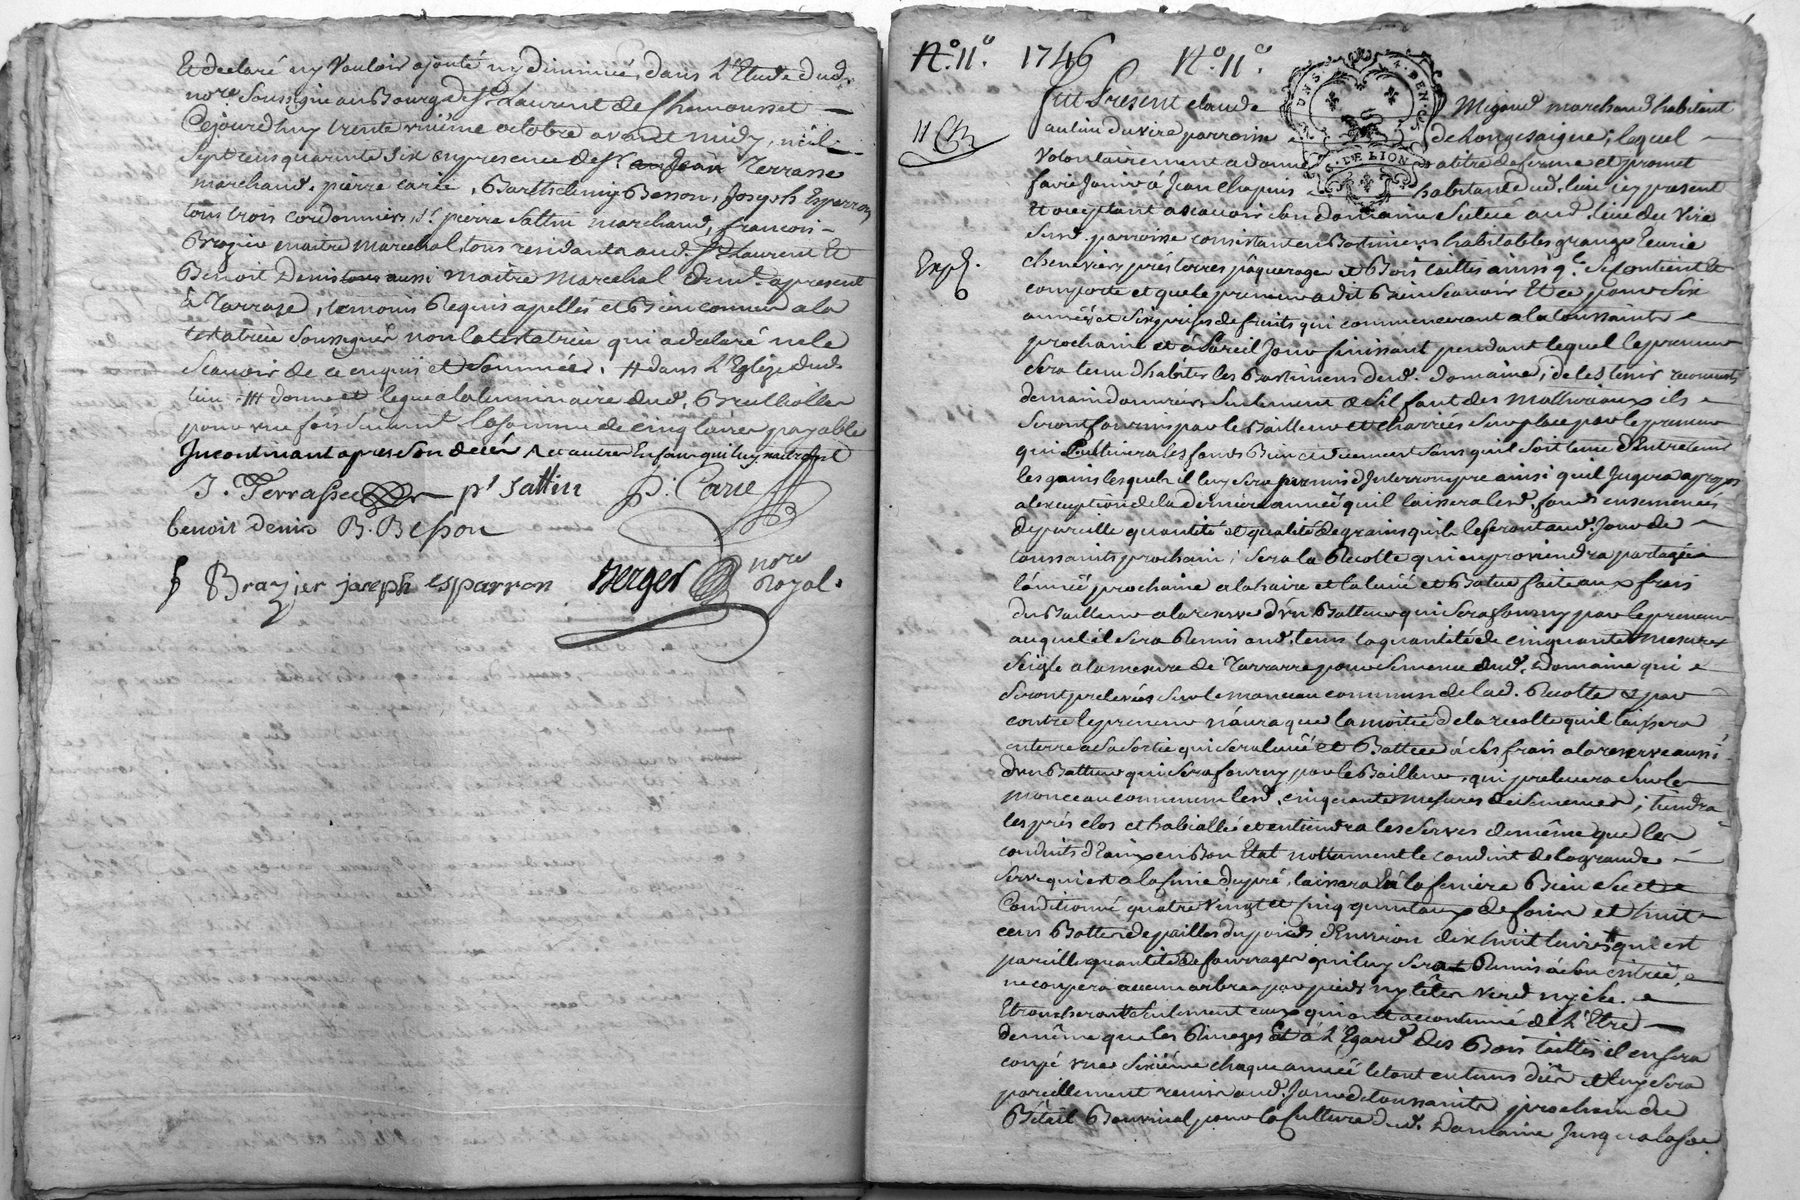 Et declaré ny Vouloir ajouté ny diminuée, dans L'Etude dud.
nore. Soussigné au Bourg de St. Laurent de Chamousset
Cejourdhuy trente unieme octobre avant midy, mil
Sept cens quarante Six en presence de Sr. Jean Terrasse
marchand, pierre Carie, Barthelemy Besson, Joseph Esparron
tous trois cordonniers, Sr. pierre Sattin marchand, francois
Brazier maitre marechal, tous residants aud. St. Laurent Et
Benoit Denis aussi maitre marechal apresent
à Tarrare, temoins Requis apellés et Bien connus ala
testatrice Soussignés non la testatrice qui a declaré ne le
Scavoir de ce enquis et Sommée. # dans L'Eglize dud.
lieu # donne et legue ala luminaire dud. Brullioles
pour une fois Seulemt. la Somme de Cinq livres payable
Incontinant apres Son decés & et autres Enfans qui luy naitront
J. Terrasse pr Sattin p. Carie
benoit denis B. Besson
f Brazier joseph esparron Berger nore
Royal.
N.o 11.o 1746 N.o 11.o
Fut Present Claude Migaud marchand habitant
au lieu du vire parroisse de longesaigne, lequel
Volontairement a donné atitre de ferme et promet
faire Jouir à Jean Chapuis habitant dud. lieu icy present
Et acceptant ascavoir Son domaine Situé aud. lieu du Vire
Susd. parroisse consistant en Batimens habitables grange Ecurie
cheneviers prés terres pâquerages et Bois taillis ainsi q.l Se Contient Et
Comporte et que le preneur a dit Bien Scavoir Et ce pour Six
années et Six prises de fruits qui commenceront a la toussaints
prochaine et à Pareil Jour finissant pendant lequel le preneur
Sera tenu d'habiter les Batimens dud. Domaine, de les tenir recouverts
demain doeuvres Seulement & S'il faut des Mathériaux ils
Seront fournis par le Bailleur et charriés Sur place par le preneur
qui Cultivera les fonds Bien et duement Sans qu'il Soit tenu d'Entretenir
les gains lesquels il luy Sera permis d'Interrompre ainsi qu'il Jugera apropos
alexception de la derniere année qu'il laissera lesd. fonds ensemencés
de pareille quantité et qualité de grains quils le Seront aud. Jour de
toussaints prochain, Sera la Recolte qui en proviendra partagée
l'année prochaine a la haire et la levée et Batue faite aux frais
du Bailleur a la reserve d'un Batteur qui Sera fourny par le preneur
auquel il Sera Remis aud. tems la quantité de cinquante mesures
Seigle a la mesure de Tarrare pour Semence dud. Domaine qui
Seront prelevées Sur le monceau commun de lad. Recolte & par
contre le preneur n'aura que la moitié de la recolte qu'il laissera
en terre a Sa Sortie qui Sera levée et Battue à Ses frais a la reserve aussi
d'un Batteur qui Sera fourny par le Bailleur, qui prelevera Sur le
monceau commun lesd. cinquante mesures de Semences, tiendra
les prés clos et entiendra les Serves de même que les
conduits d'Eaux en Bon Etat nottament le conduit de la grande
Serve qui est a la Sime du pré, laissera à la feniere Bien Sec et
Conditionné quatre vingt et Cinq quintaux de foin et huit
cens Bottes de pailles du poids d'Environ dix huit livres qui est
pareille quantité de fourrages qui luy Sera Remis à Son entrée,
ne coupera aucun arbres par pieds ny têtes verd ny Sec.
Etronchera Seulement ceux qui ont accoutumé de L'Etre
de même que les Rivages Et à L'Egard des Bois taillis il en Sera
coupé une Sixième chaque année le tout en tems dû et luy Sera
pareillement remis aud. Jour de toussaints prochain du
Bétail Bouvinal pour la Culture dud. Domaine Jusqu'a la So
Exp.